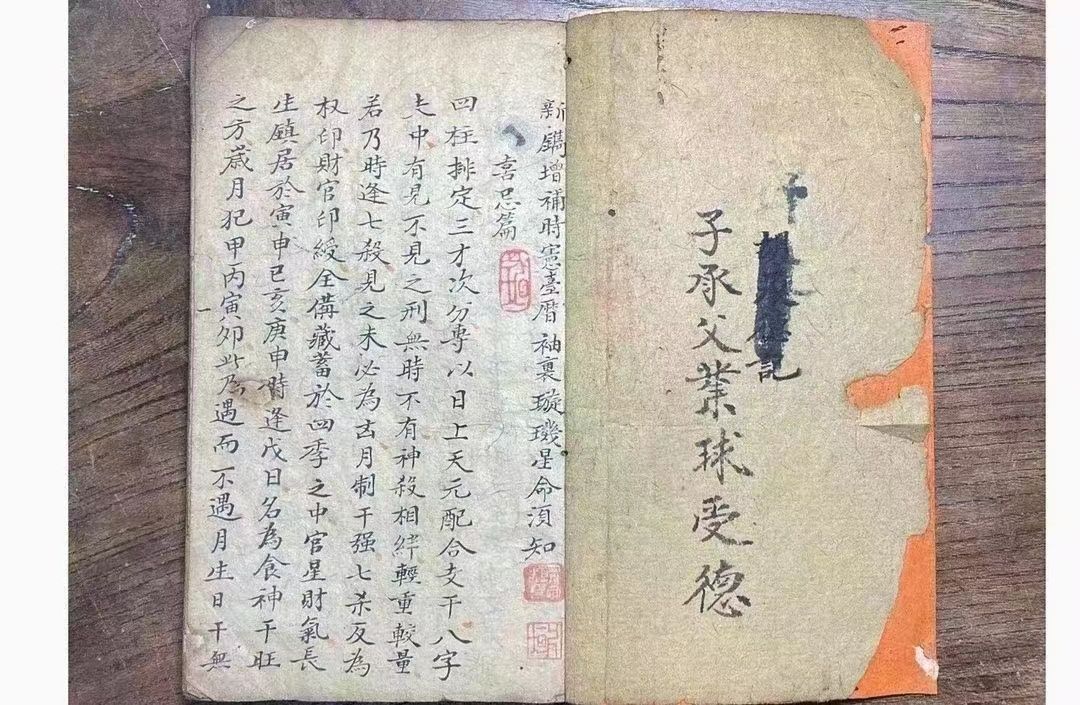 子承父業球受德
記
新鐫增補時憲臺曆袖裏璇璣星命須知
喜忌篇
四柱排定三才次分專以日上天元配合支干八字
夫中有見不見之刑無時不有神殺相絆輕重較量
若乃時逢七殺見之未必為凶月制干强七杀反為
权印財官印綬全備藏蓄於四季之中官星財氣長
生鎮居於寅申巳亥庚申時逢戊日名為食神干旺
之方歲月犯甲丙寅卯此乃遇而不遇月生日干無